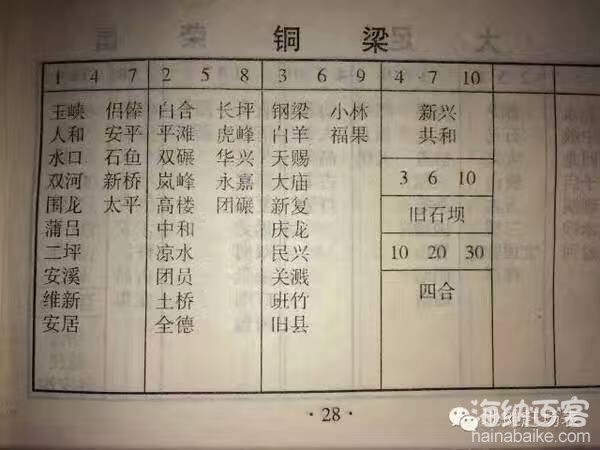 铜 梁
1 4 7
玉峡 侣俸
人和 安平
水口 石鱼
双河 新桥
围龙 太平
蒲吕
二坪
安溪
维新
安居
2 5 8
白合 长坪
平滩 虎峰
双碾 华兴
岚峰 永嘉
高楼 团碾
中和
凉水
团员
土桥
全德
3 6 9
钢梁 小林
白羊 福果
天赐
大庙
新复
庆龙
民兴
关溅
班竹
旧县
4 7 10
新兴
共和
3 6 10
旧石坝
10 20 30
四合
· 28 ·
海纳百客
hainabaike.com